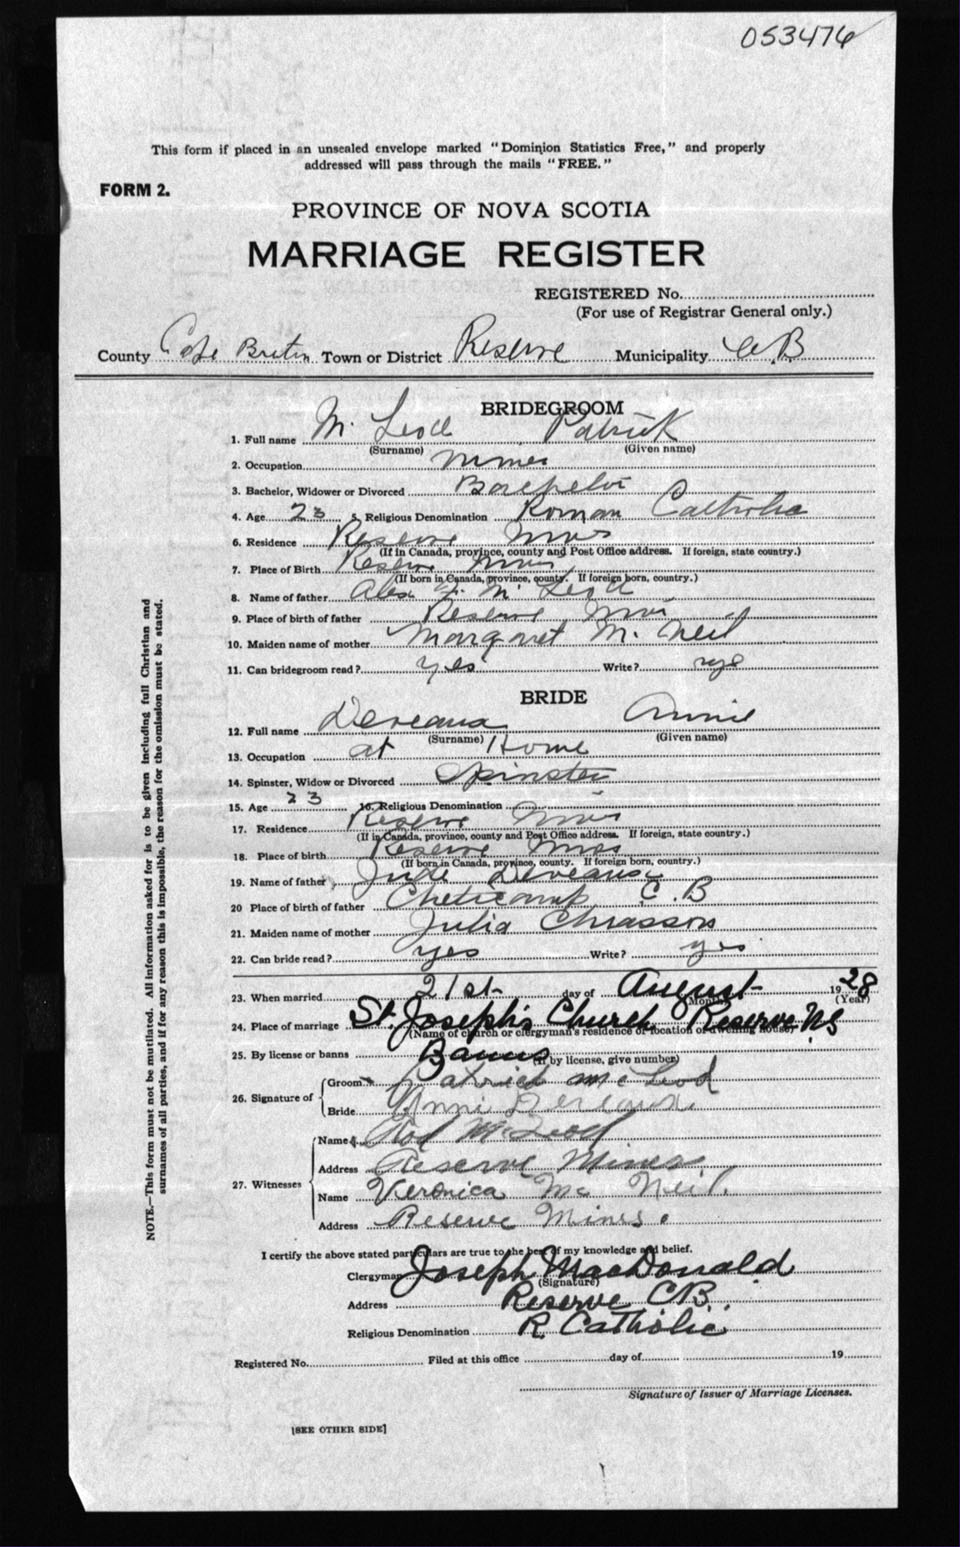 053476
This form if placed in an unsealed envelope marked "Dominion Statistics Free," and properly
addressed will pass through the mails "FREE."
FORM 2.
PROVINCE OF NOVA SCOTIA
MARRIAGE REGISTER
REGISTERED No.
(For use of Registrar General only.)
County Cape Breton Town or District Reserve Municipality C.B
BRIDEGROOM
1. Full name Mc Leod Patrick
(Surname) (Given name)
2. Occupation Miner
3. Bachelor, Widower or Divorced Bachelor
4. Age 23 5. Religious Denomination Roman Catholic
6. Residence Reserve Mines
(If in Canada, province, county and Post Office address. If foreign, state country.)
7. Place of Birth Reserve Mines
(If born in Canada, province, county. If foreign born, country.)
8. Name of father Alex Mc Leod
9. Place of birth of father Reserve Mines
10. Maiden name of mother Margaret Mc Neil
11. Can bridegroom read? yes Write? yes
BRIDE
12. Full name Deveaux Annie
(Surname) (Given name)
13. Occupation at Home
14. Spinster, Widow or Divorced Spinster
15. Age 23 16. Religious Denomination
17. Residence Reserve Mines
(If in Canada, province, county and Post Office address. If foreign, state country.)
18. Place of birth Reserve Mines
(If born in Canada, province, county. If foreign born, country.)
19. Name of father Jude Deveaux
20 Place of birth of father Cheticamp C.B
21. Maiden name of mother Julia Chiasson
22. Can bride read? yes Write? yes
23. When married 21st day of August 1928
(Month) (Year)
24. Place of marriage St. Joseph's Church Reserve NS
(Name of church or clergyman's residence or location of
25. By license or banns Banns (If by license, give number)
26. Signature of
Groom Patrick McLeod
Bride Anni Deveaux
27. Witnesses
Name McLeod
Address Reserve Mines
Name Veronica Mc Neil.
Address Reserve Mines.
I certify the above stated particulars are true to the best of my knowledge and belief.
Clergyman Joseph MacDonald
(Signature)
Address Reserve C.B.
Religious Denomination R. Catholic
Registered No. Filed at this office day of 19
Signature of Issuer of Marriage Licenses.
[SEE OTHER SIDE]
NOTE.—This form must not be mutilated. All information asked for is to be given including full Christian and
surnames of all parties, and if for any reason this is impossible, the reason for the omission must be stated.